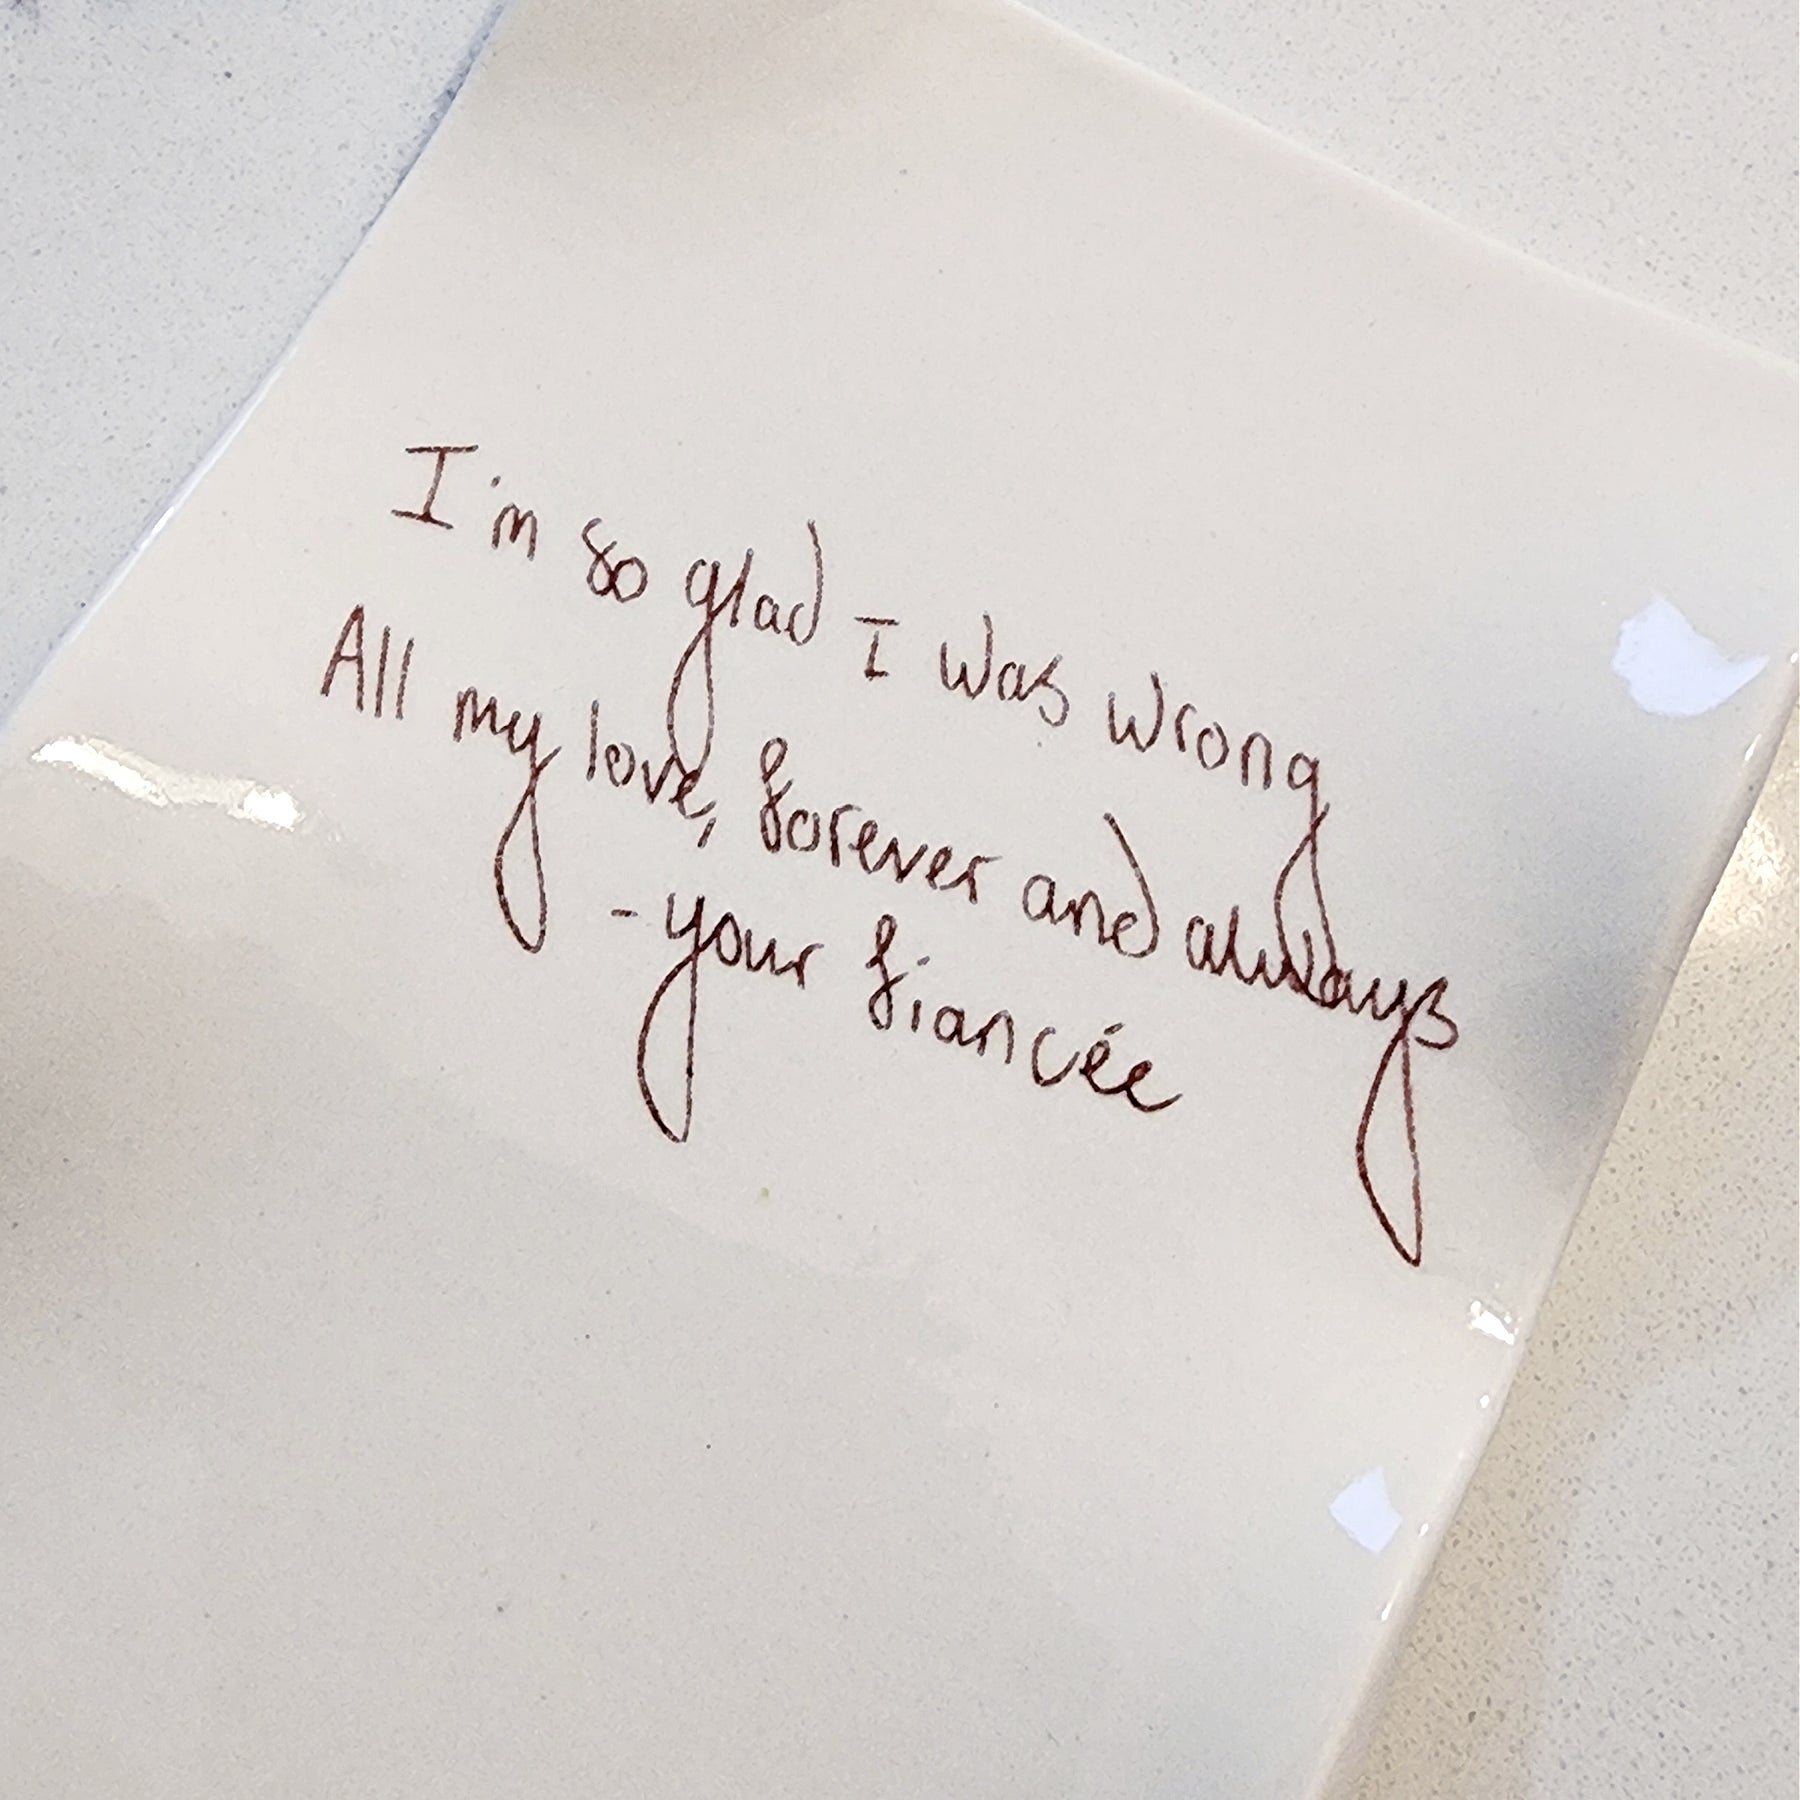 I'm so glad I was wrong
All my love, forever and always
- your fiancée